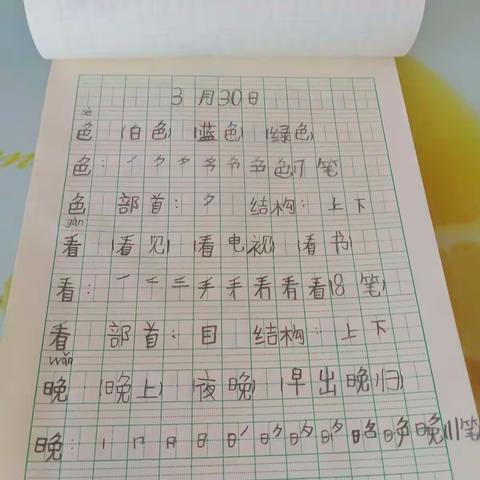 3月30日
sè
色 (白色) (蓝色) (绿色)
色: 色(7笔
色 部首: ⺈ 结构: 上下
kàn
看 (看见) (看电视) (看书)
看: 手 看 看 看(8笔)
看 部首: 目 结构: 上下
wǎn
晚 (晚上) (夜晚) (早出晚归)
晚: 丨 冂 日 日 晚 晚(11笔